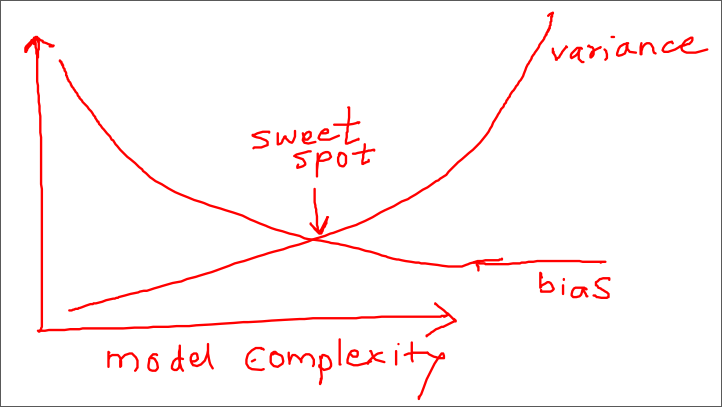 variance
sweet
spot
bias
model complexity